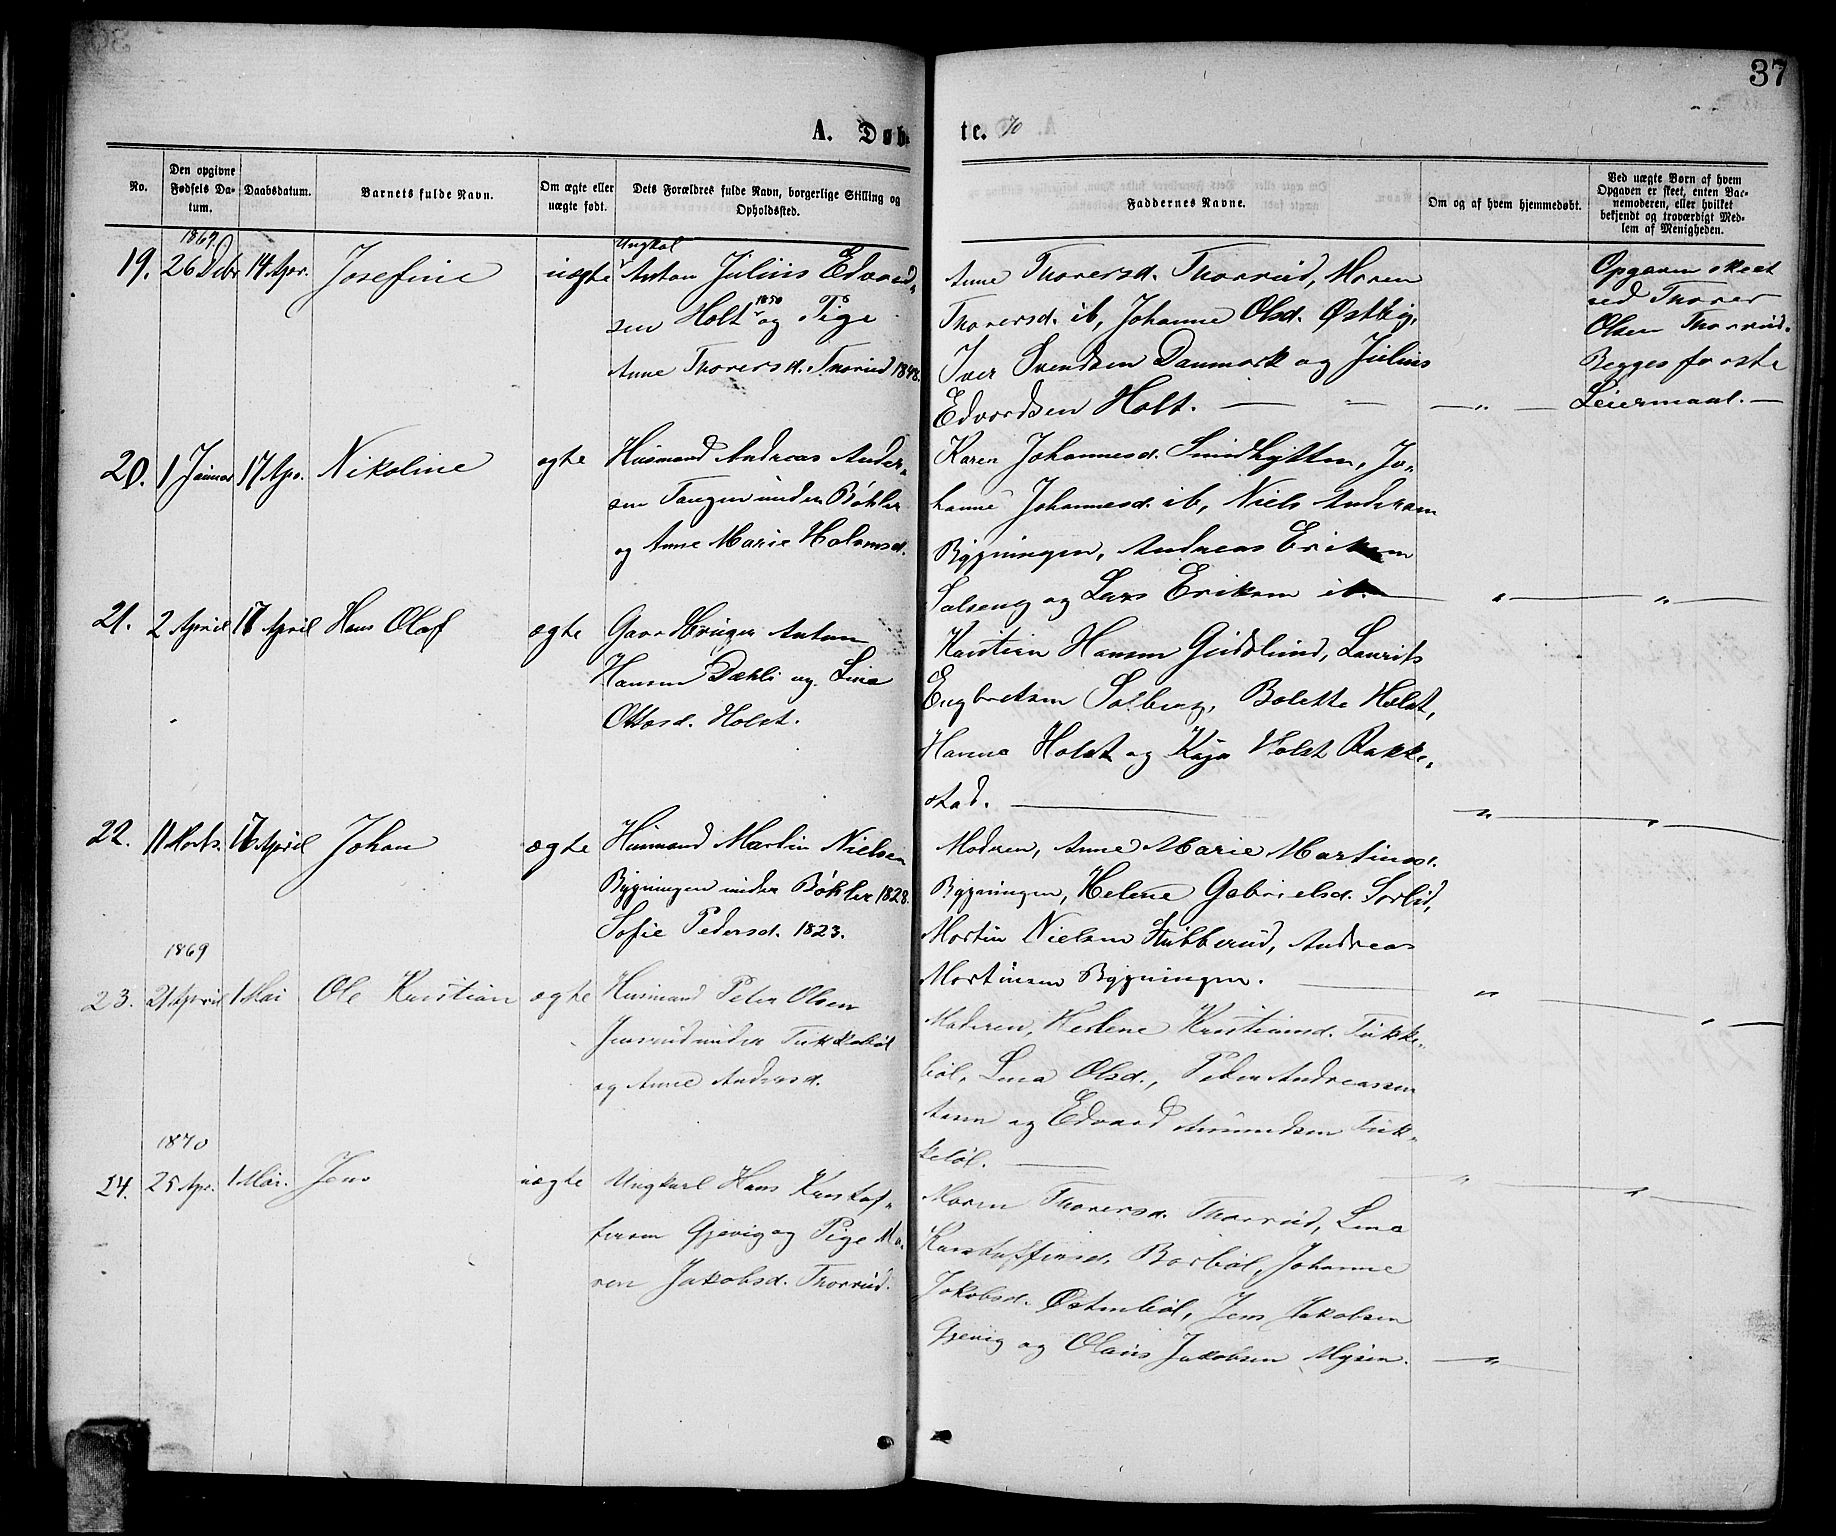 37
A. Døb-
te. 70
No.
Den opgivne Fødsels Da-tum.
Daabsdatum.
Barnets fulde Navn.
Om ægte eller uægte født.
Dets Forældres fulde Navn, borgerlige Stilling og Opholdssted.
Faddernes Navne.
Om og af hvem hjemmedøbt.
Ved uægte Børn af hvem Opgaven er skeet, enten Bar-nemoderen, eller hvilket bekjendt og troværdigt Med-lem af Menigheden.
1869.
19. 26 Debr 14 Apr. Josefine uægte
Ungkal
Anton Julius Edvard-
sen Holt 1850 og Pige
Anne Thorersd. Thorrud 1848.
Anne Thorersd. Thorrud, Maren
Thorersd. ib, Johanne Olsd. Østbig,
Iver Svendsen Danmark og Julius
Edvardsen Holt. — " — "
Opgaven skeet
ved Thorer
Olsen Thorrud.
Begges første
Leiermaal. —
20. 1 Januar 17 Apr. Nikoline ægte
Husmand Andreas Ander-
sen Tangen under Bøhler
og Anne Marie Holmsd.
Karen Johannesd. Smidhytten, Jo-
hanne Johannesd. ib, Niels Andersen
Bygningen, Andreas Eriksen
Solseng og Lars Eriksen ib. — " — "
21. 2 April 17 April Hans Olaf ægte
Gaardbruger Anton
Hansen Dæhli og Lina
Ottosd. Holst.
Kristian Hansen Guldslund, Laurits
Engbretsen Solberg, Bolette Holst,
Hanna Holst og Kaja Holst Rakke-
stad. — " — "
22. 11 Marts. 17 April Johan ægte
Husmand Martin Nielsen
Bygningen under Bøhler 1828.
Sofie Pedersd. 1823.
Moderen, Anne Marie Martinsd.
Bygningen, Helene Gabrielsd. Sorlid,
Martin Nielsen Stubberud, Andreas
Martinsen Bygningen. — " — "
1869
23. 21 April 1 Mai Ole Kristian ægte
Husmand Peter Olsen
Jensrud under Tukkebøl
og Anne Andersd.
Moderen, Helene Kristiansd. Tukke-
bøl, Lina Olsd., Peder Andreassen
Aasen og Edvard Amundsen Tuk-
kebøl. — " — "
1870
24. 25 Apr. 1 Mai. Jens uægte
Ungkarl Hans Kristof-
fersen Gjevig og Pige Ma-
ren Jakobsd. Thorrud.
Maren Thorersd. Thorrud, Lina
Kristoffersd. Borbøl, Johanne
Jakobsd. Østenbøl, Jens Jakobsen
Gjevig og Olaus Jakobsen Mysen. — "